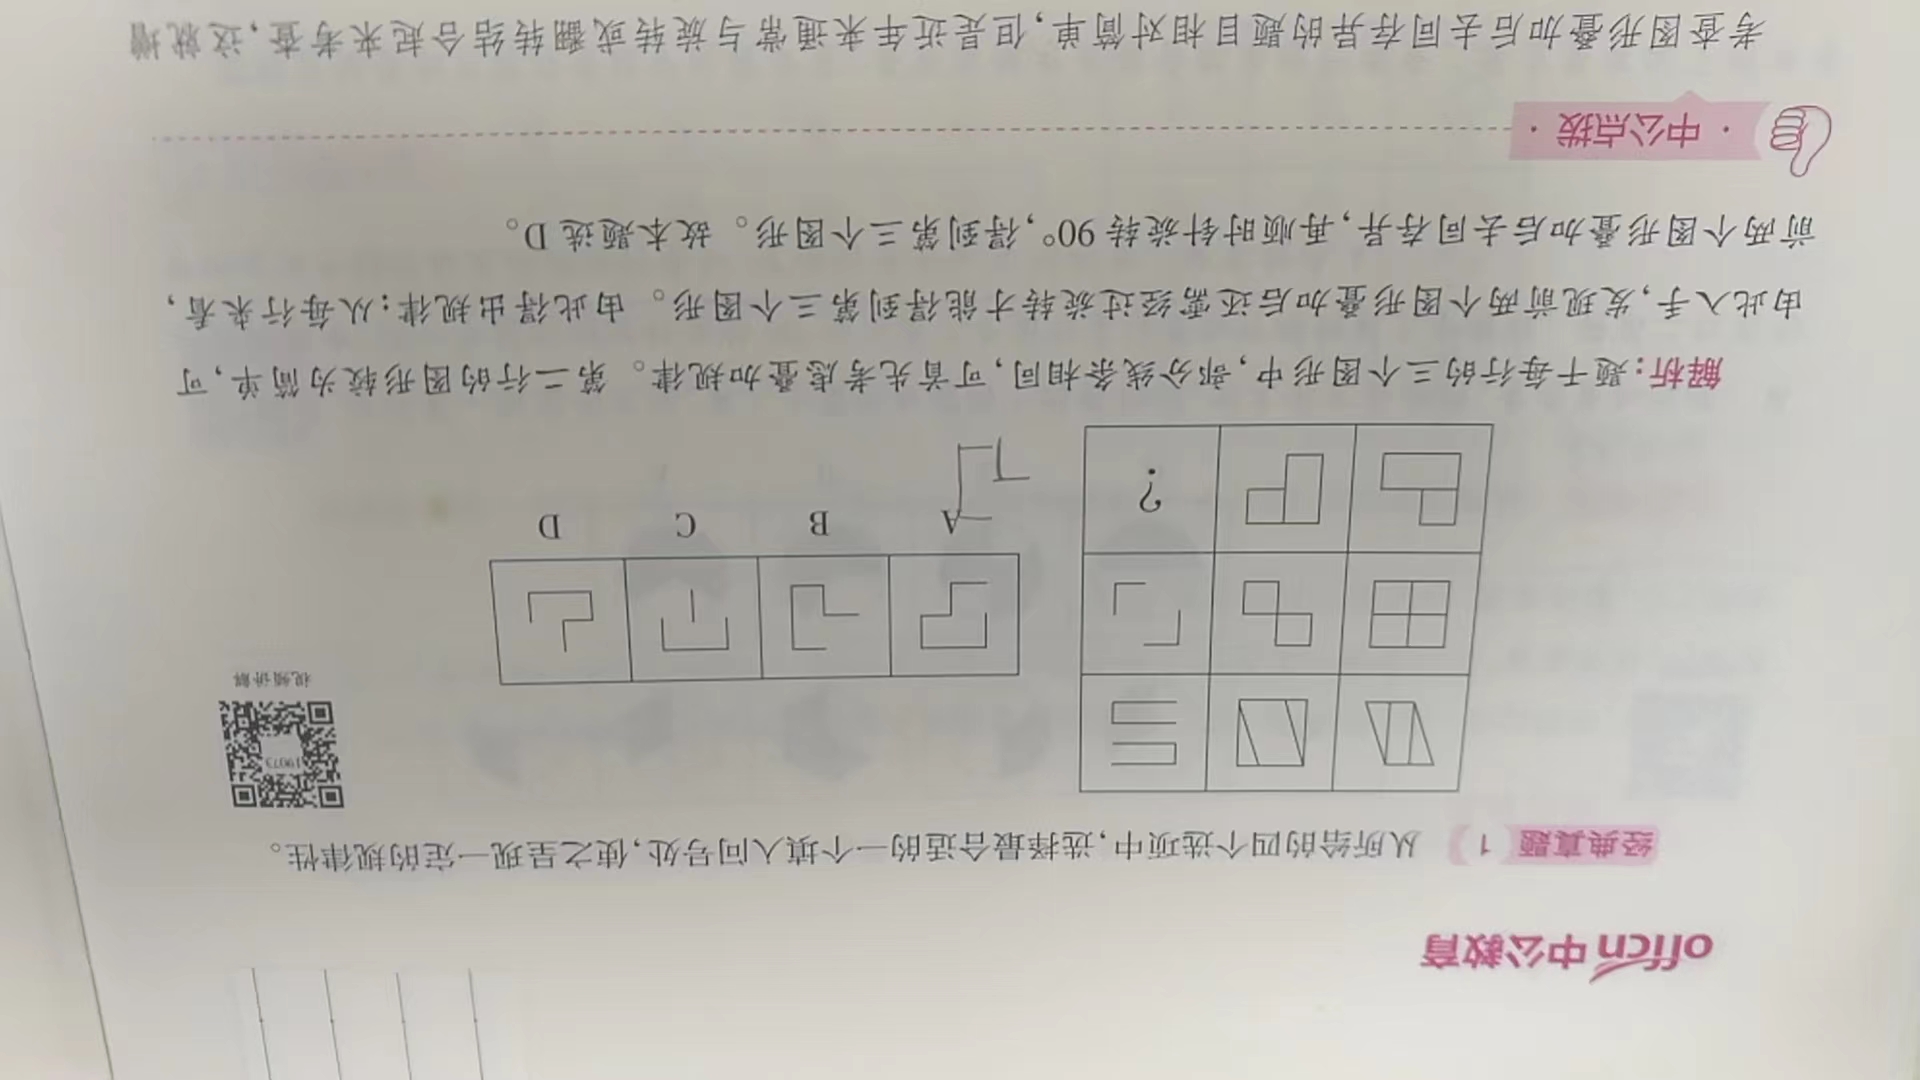 offcn中公教育
经典真题 1 从所给的四个选项中,选择最合适的一个填入问号处,使之呈现一定的规律性。
19073
视频讲解
?
A B C D
解析:题干每行的三个图形中,部分线条相同,可首先考虑叠加规律。第二行的图形较为简单,可
由此入手,发现前两个图形叠加后还需经过旋转才能得到第三个图形。由此得出规律:从每行来看,
前两个图形叠加后去同存异,再顺时针旋转90°,得到第三个图形。故本题选D。
·中公点拨·
考查图形叠加后去同存异的题目相对简单,但是近年来通常与旋转或翻转结合起来考查,这就增